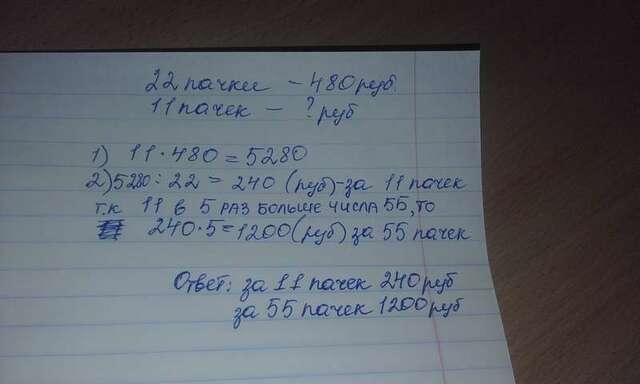 22 пачки - 480 руб.
11 пачек - ? руб
1) 11 · 480 = 5280
2) 5280 : 22 = 240 (руб) - за 11 пачек
т.к 11 в 5 РАЗ БОЛЬШЕ ЧИСЛА 55, ТО
240 · 5 = 1200 (руб) за 55 пачек
Ответ: за 11 пачек 240 руб
за 55 пачек 1200 руб